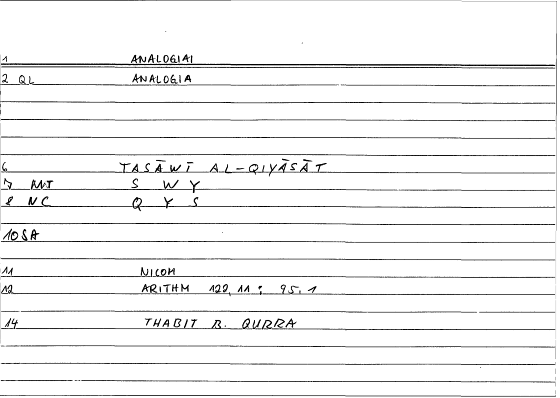 1 ANALOGIAI
2 QL ANALOGIA
6 TASĀWĪ AL-QIYĀSĀT
7 MT S W Y
8 NC Q Y S
10 SA
11 NICOM
12 ARITHM 122, 11 ; 95. 1
14 THABIT B. QURRA